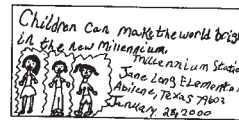 Children Can Make the world brig
in the new Millennium.
Millennium Statio
Jane Long Elementa
Abilene, Texas 79603
January 28, 2000